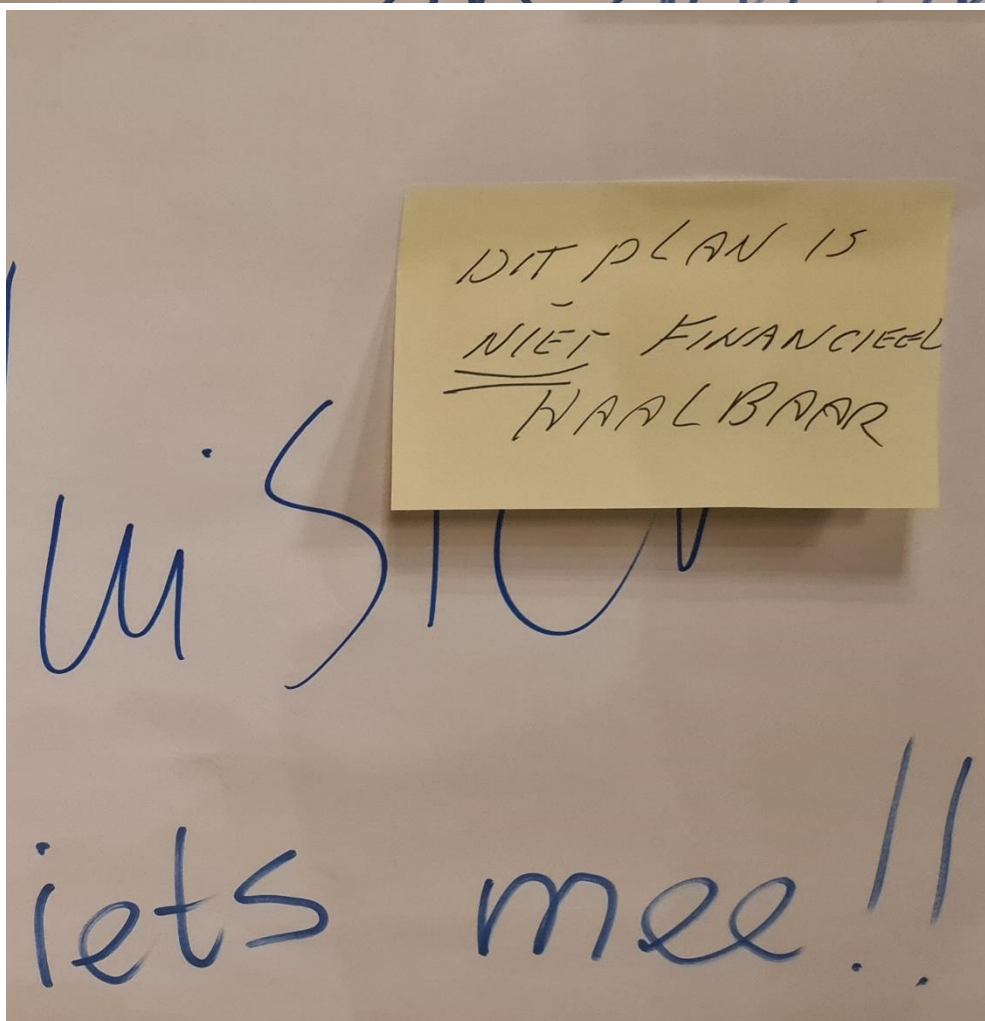 DIT PLAN IS
NIET FINANCIEEL
HAALBAAR
iets mee!!